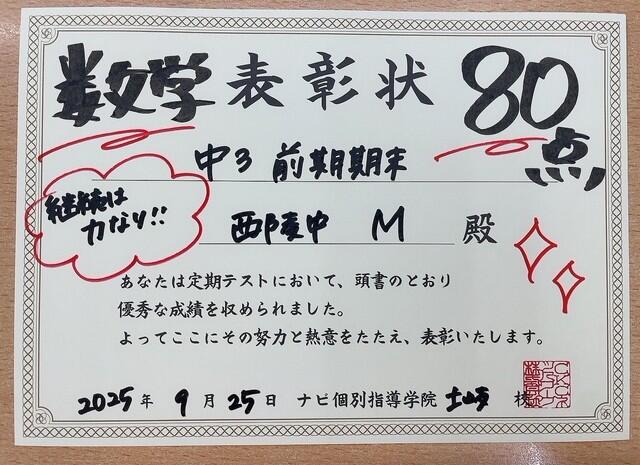 数学 表彰状 80点
中3 前期期末
継続は
力なり!!
西陵中 M 殿
あなたは定期テストにおいて、頭書のとおり
優秀な成績を収められました。
よってここにその努力と熱意をたたえ、表彰いたします。
2025年 9月25日 ナビ個別指導学院 土崎 校